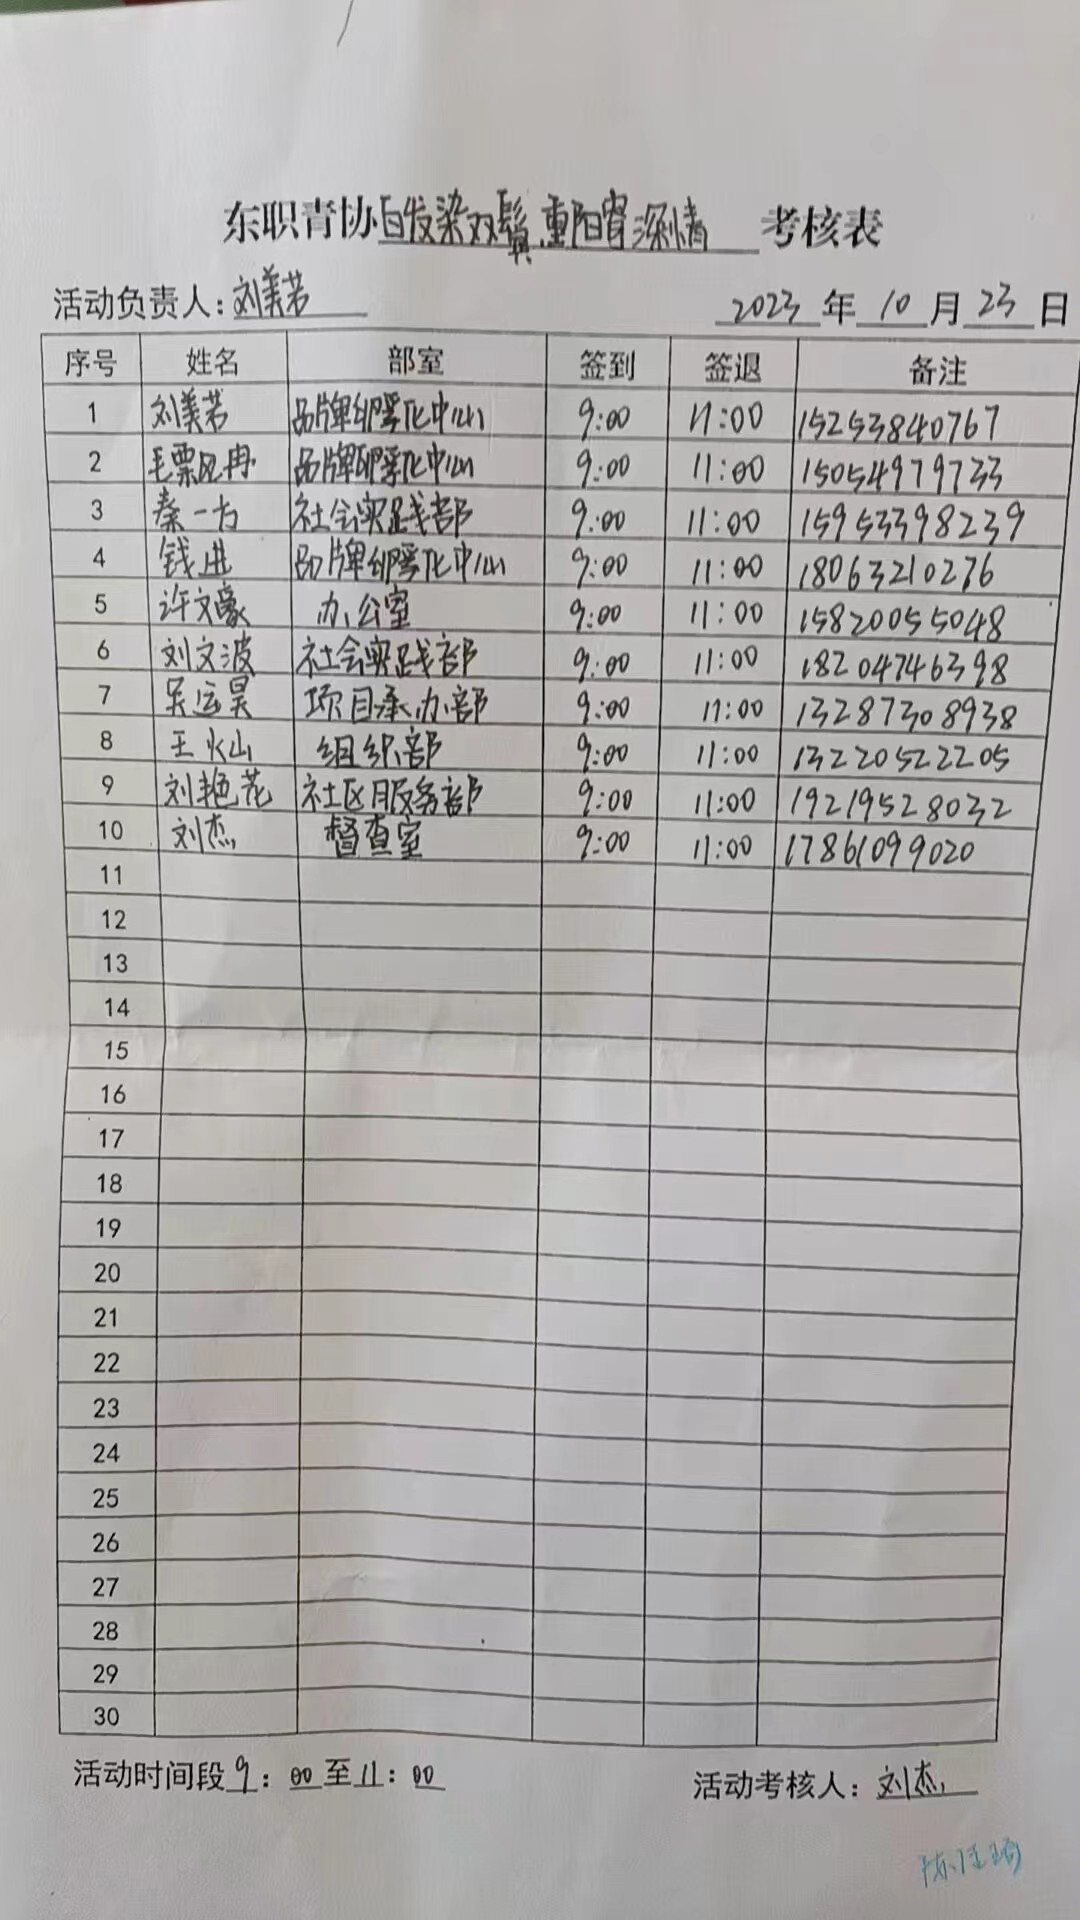 东职青协白发染双鬓,重阳寄深情 考核表
活动负责人:刘美芳 2023年10月23日
序号 姓名 部室 签到 签退 备注
1 刘美芳 品牌孵化中心 9:00 11:00 15253840767
2 毛票冉 品牌孵化中心 9:00 11:00 15054979733
3 秦一方 社会实践部 9:00 11:00 15953398239
4 钱进 品牌孵化中心 9:00 11:00 18063210276
5 许文豪 办公室 9:00 11:00 15820055048
6 刘文波 社会实践部 9:00 11:00 18204746398
7 吴运昊 项目承办部 9:00 11:00 13287308938
8 王火山 组织部 9:00 11:00 13220522205
9 刘艳花 社区服务部 9:00 11:00 19219528032
10 刘杰 督查室 9:00 11:00 17861099020
11
12
13
14
15
16
17
18
19
20
21
22
23
24
25
26
27
28
29
30
活动时间段9:00至11:00 活动考核人:刘杰